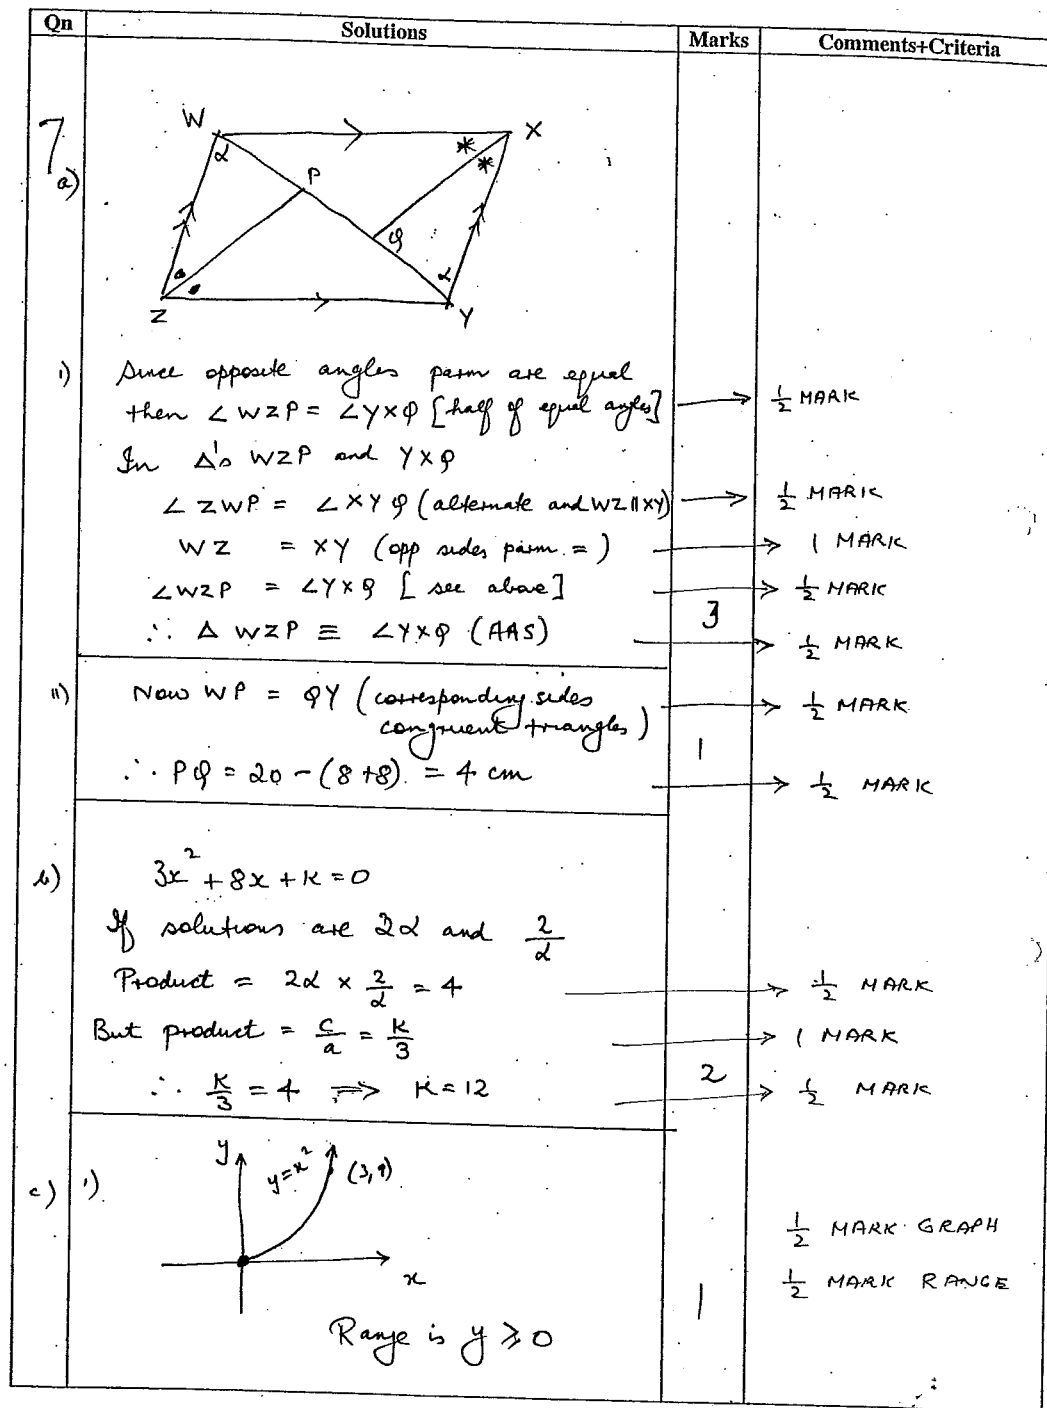 Qn Solutions Marks Comments+Criteria
7 a)
W X
α P * *
Q
α
Z Y
i) Since opposite angles parm are equal
then ∠WZP = ∠YXQ [half of equal angles] → 1/2 MARK
In Δ's WZP and YXQ
∠ZWP = ∠XYQ (alternate and WZ || XY) → 1/2 MARK
WZ = XY (opp sides parm. =) → 1 MARK
∠WZP = ∠YXQ [see above] → 1/2 MARK
∴ Δ WZP ≡ ∠YXQ (AAS) 3 → 1/2 MARK
ii) Now WP = QY (corresponding sides → 1/2 MARK
congruent triangles)
1
∴ PQ = 20 - (8+8) = 4 cm → 1/2 MARK
b) 3x² + 8x + K = 0
If solutions are 2α and 2/α
Product = 2α × 2/α = 4 → 1/2 MARK
But product = c/a = K/3 → 1 MARK
∴ K/3 = 4 ⟹ K = 12 2 → 1/2 MARK
c) i) y y=x² (3,9)
1/2 MARK GRAPH
x
1/2 MARK RANGE
1
Range is y ⩾ 0